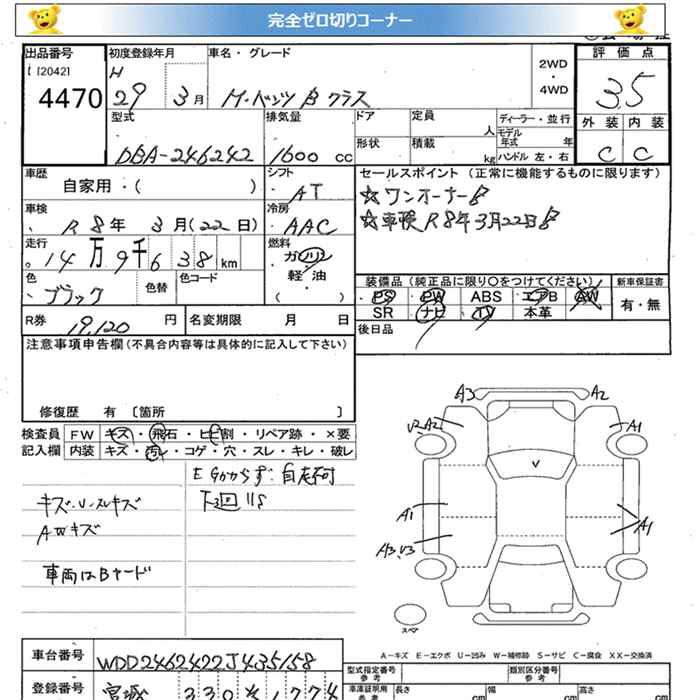 完全ゼロ切りコーナー
出品番号 初度登録年月 車名・グレード 2WD・4WD 評価点
4470 H 29 3月 M・ベンツ B クラス 3.5
型式 排気量 ドア 定員 人 ディーラー・並行 外装 内装
DBA-246242 1600 cc 形状 積載 kg モデル年式 年 ハンドル 左・右 C C
車歴 自家用・( ) シフト AT セールスポイント (正常に機能するものに限ります)
☆ワンオーナー
車検 R 8年 3月(22日) 冷房 AAC ☆車検R8年3月22日
走行 14万9千638km 燃料 ガソリン
軽・油
( )
色 ブラック 色替 色コード
装備品(純正品に限り○をつけてください) 新車保証書
PS・PW ABS エアB AW 有・無
SR ナビ TV 本革
R券 19,120 円 名変期限 月 日 後日品
注意事項申告欄(不具合内容等は具体的に記入して下さい)
修復歴 有〔箇所 〕
検査員 FW キズ・飛石・ヒビ割・リペア跡・×要
記入欄 内装 キズ・汚レ・コゲ・穴・スレ・キレ・破レ
EGかからず 自走不可
キズ・U・スレキズ 下回 US
AWキズ
車両はBヤード
A3 A2
U2A2 A1
A1 A1
A3、U3
スペア
A-キズ E-エクボ U-凹み W-補修跡 S-サビ C-腐食 XX-交換済
車台番号 WDD2462422J435158
型式指定番号 参考 類別区分番号 参考
登録番号 宮城 330 1774
車庫証明用 長さ cm 幅 cm 高さ cm